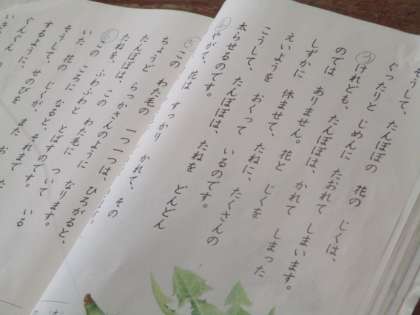 うして、たんぽぽの 花の じくは、
ぐったりと じめんに たおれて しまいます。
けれども、たんぽぽは、かれて しまった
のでは ありません。花と じくを
しずかに 休ませて、たねに、たくさんの
えいようを おくって いるのです。
こうして、たんぽぽは、たねを どんどん
太らせるのです。
やがて、花は すっかり かれて、その
この わた毛の 一つ一つは、ひろがると、
ちょうど らっかさんのように なります。
たんぽぽは、この わた毛に ついて いる
たねを、ふわふわと とばすのです。
このころに なると、それまで
いた 花の じくが、また
そうして、せのびを
するように、
ぐんぐん